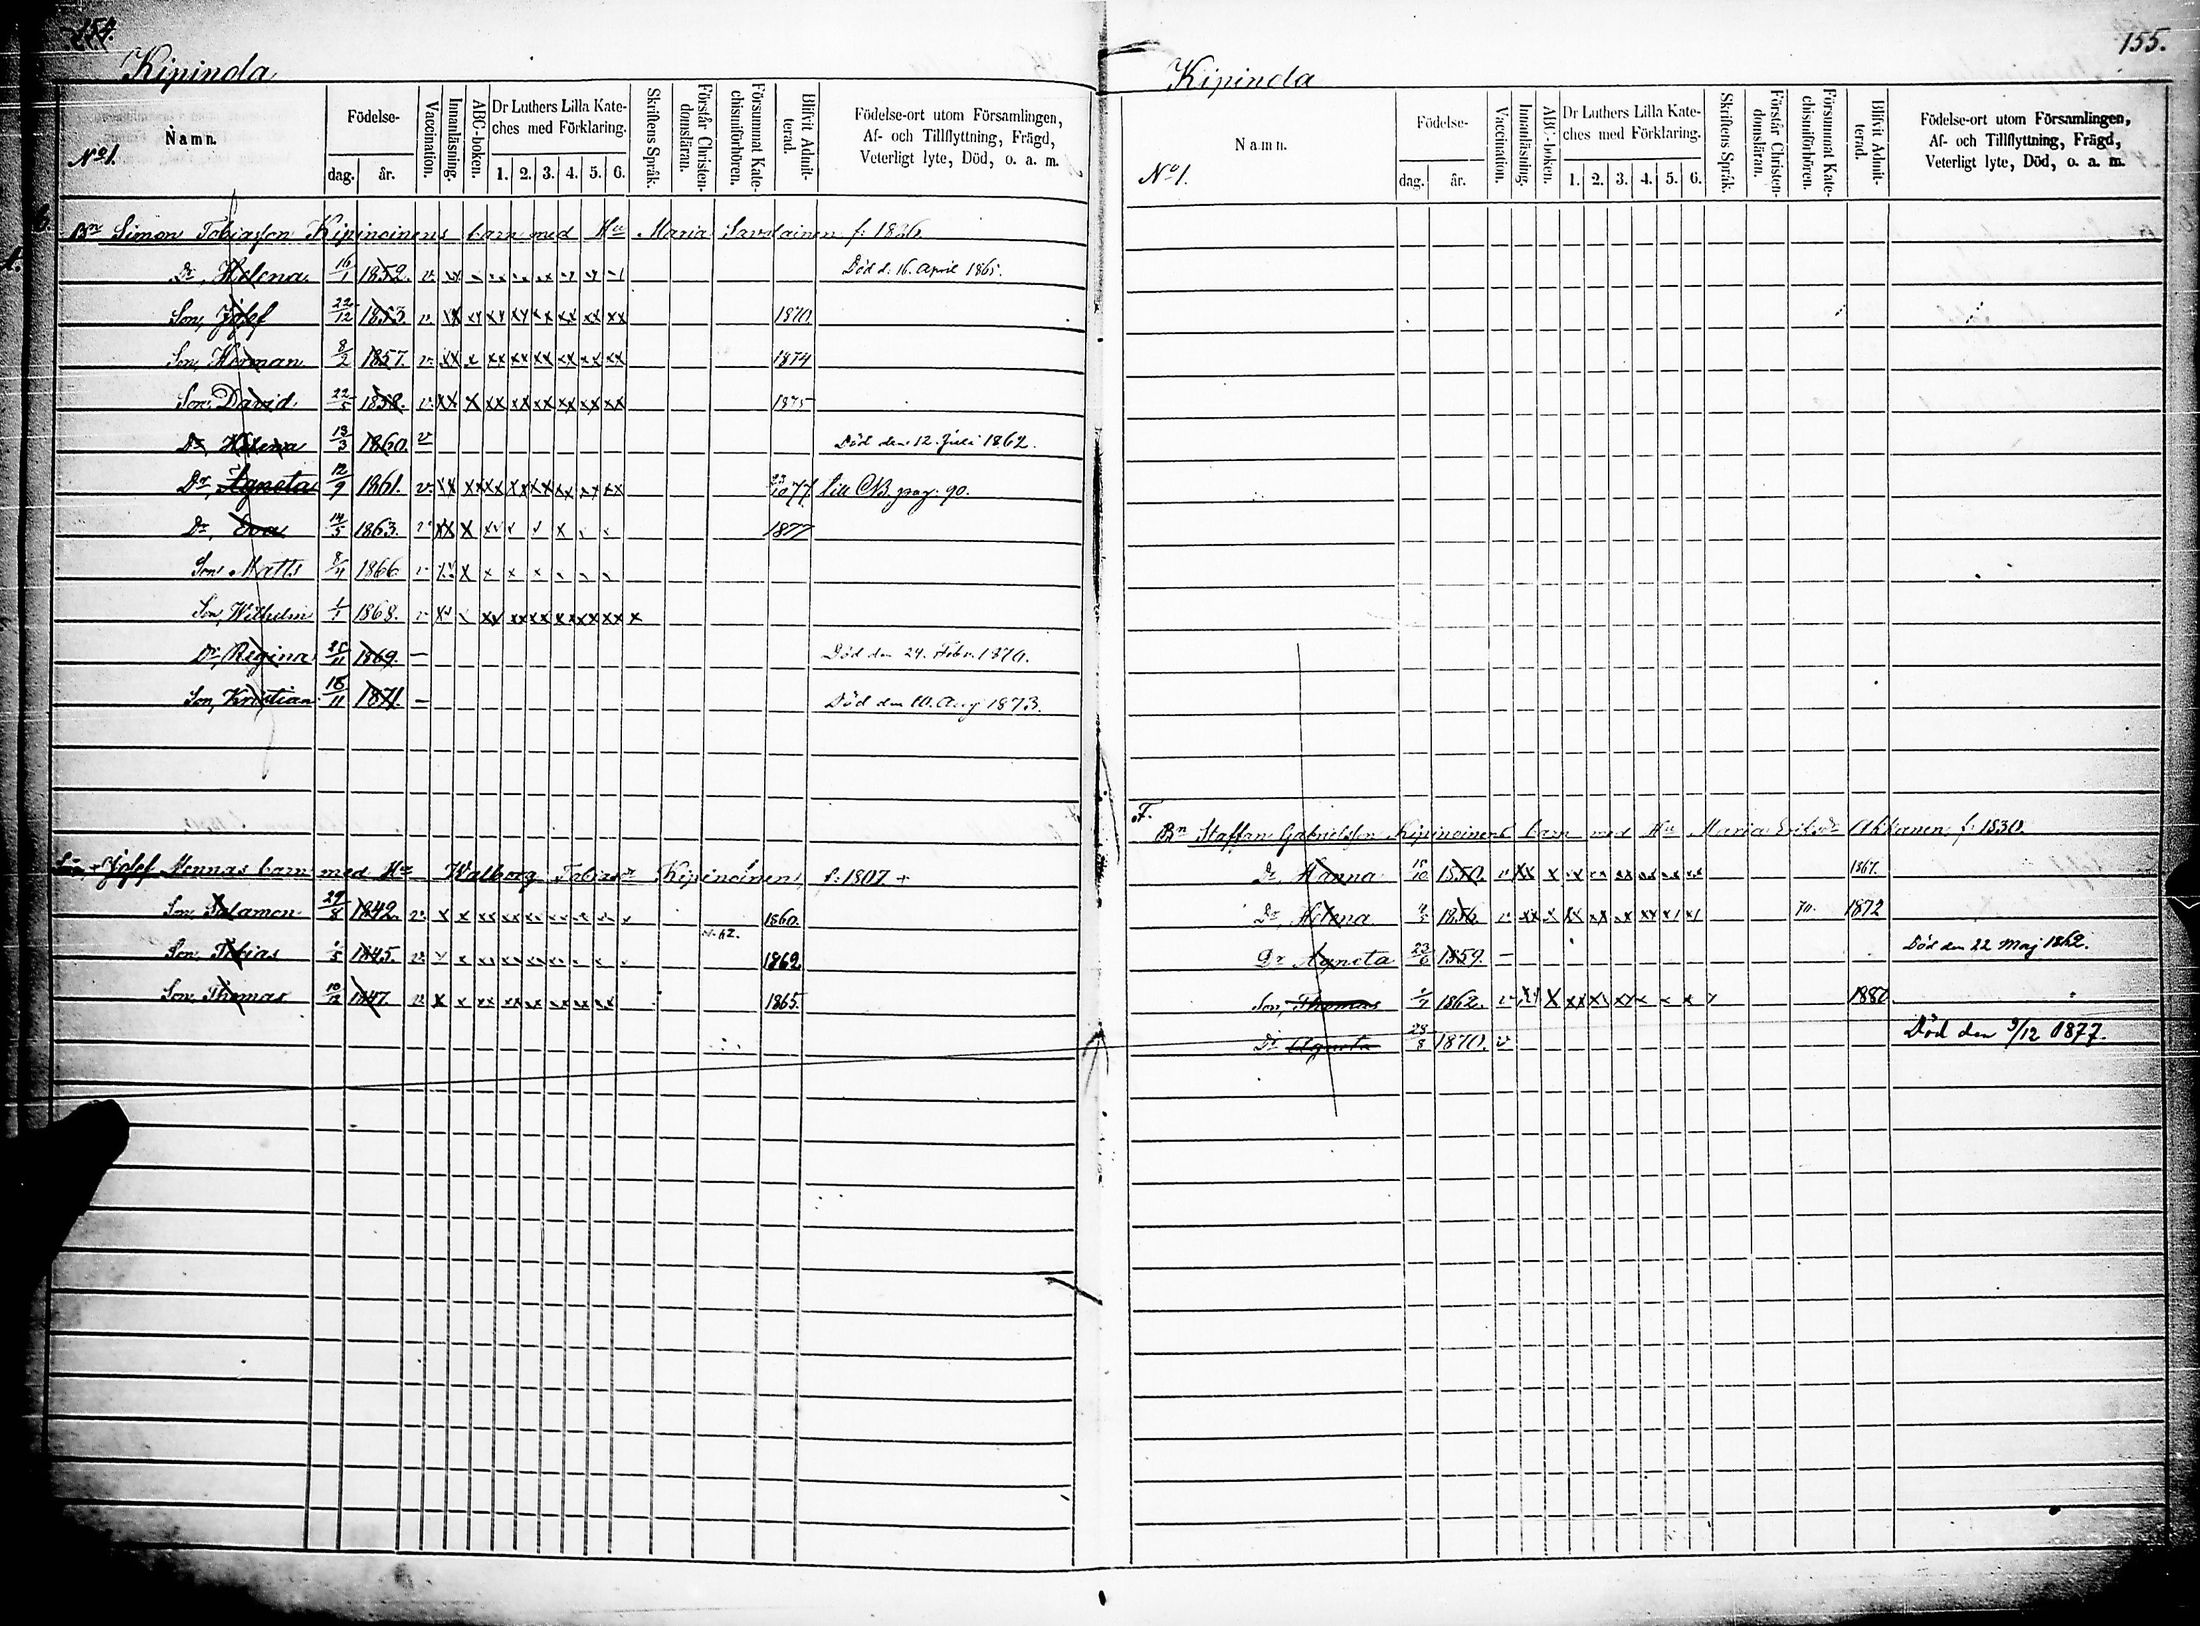 154.
Kipinola
Namn.
No 1.
Födelse-
dag. år.
Vaccination.
Innanläsning.
ABC-boken.
Dr Luthers Lilla Kate-
ches med Förklaring.
1. 2. 3. 4. 5. 6.
Skriftens Språk.
Förstår Christen-
domsläran.
Försummat Kate-
chismiförhören.
Blifvit Admit-
terad.
Födelse-ort utom Församlingen,
Af- och Tillflyttning, Frägd,
Veterligt lyte, Död, o. a. m.
Bn Simon Tobiasson Kipinoinens barn med Hu Maria Savolainen f: 1826
Dr, Helena 16/1 1852. v. Död d. 16. April 1865.
Son, Josef 22/12 1853. v. 1870.
Son, Herman 8/2 1857. v. 1874
Son, David 22/5 1858. v. 1875
Dr, Helena 13/3 1860. v Död den 12. Juli 1862.
Dr, Agneta 12/9 1861. v. 77 till CB. pag. 90.
Dr, Eva 14/5 1863. v 1877
Son, Matts 8/4 1866. v
Son, Wilhelm 1/1 1868. v
Dr, Regina 25/11 1869. – Död den 24. Febr. 1870.
Son, Kristian 18/11 1871. – Död den 10. Aug 1873.
Josef Mennas barn med Hu Walborg Tobiasdr Kipinoinen f: 1807 +
Son, Salamon 29/8 1842. v. 1860.
62.
Son, Tobias 1/5 1845. v. 1862
Son, Thomas 10/12 1847. v. 1865.
155.
Kipinola
Namn.
No 1.
Födelse-
dag. år.
Vaccination.
Innanläsning.
ABC-boken.
Dr Luthers Lilla Kate-
ches med Förklaring.
1. 2. 3. 4. 5. 6.
Skriftens Språk.
Förstår Christen-
domsläran.
Försummat Kate-
chismiförhören.
Blifvit Admit-
terad.
Födelse-ort utom Församlingen,
Af- och Tillflyttning, Frägd,
Veterligt lyte, Död, o. a. m.
F.
Bn Staffan Gabrielsson Kipinoinens barn med Hu Maria Eriksdr f: 1830.
Dr, Hanna 15/10 1850. v 1867.
Dr, Helena 1856. v 70. 1872
Dr Agneta 23/6 1859. – Död den 22 Maj 1862.
Son, Thomas 1/7 1862. v 1880
Dr Agneta 28/8 1870. v Död den 9/12 1877.